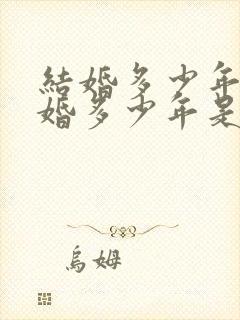 結婚多少年
婚多少年是
烏姆